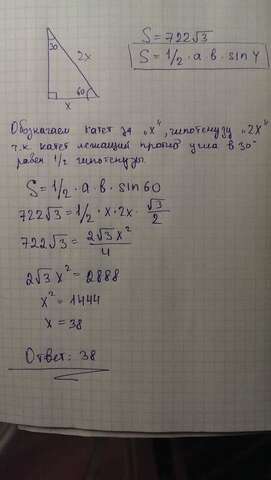 30
2x
60
x
S = 722√3
S = 1/2 · a · b · sin γ
Обозначаем катет за „x“, гипотенузу „2x“
т.к. катет лежащий против угла в 30°
равен 1/2 гипотенузы.
S = 1/2 · a · b · sin 60
722√3 = 1/2 · x · 2x · √3/2
722√3 = 2√3 x²/4
2√3 x² = 2888
x² = 1444
x = 38
Ответ: 38